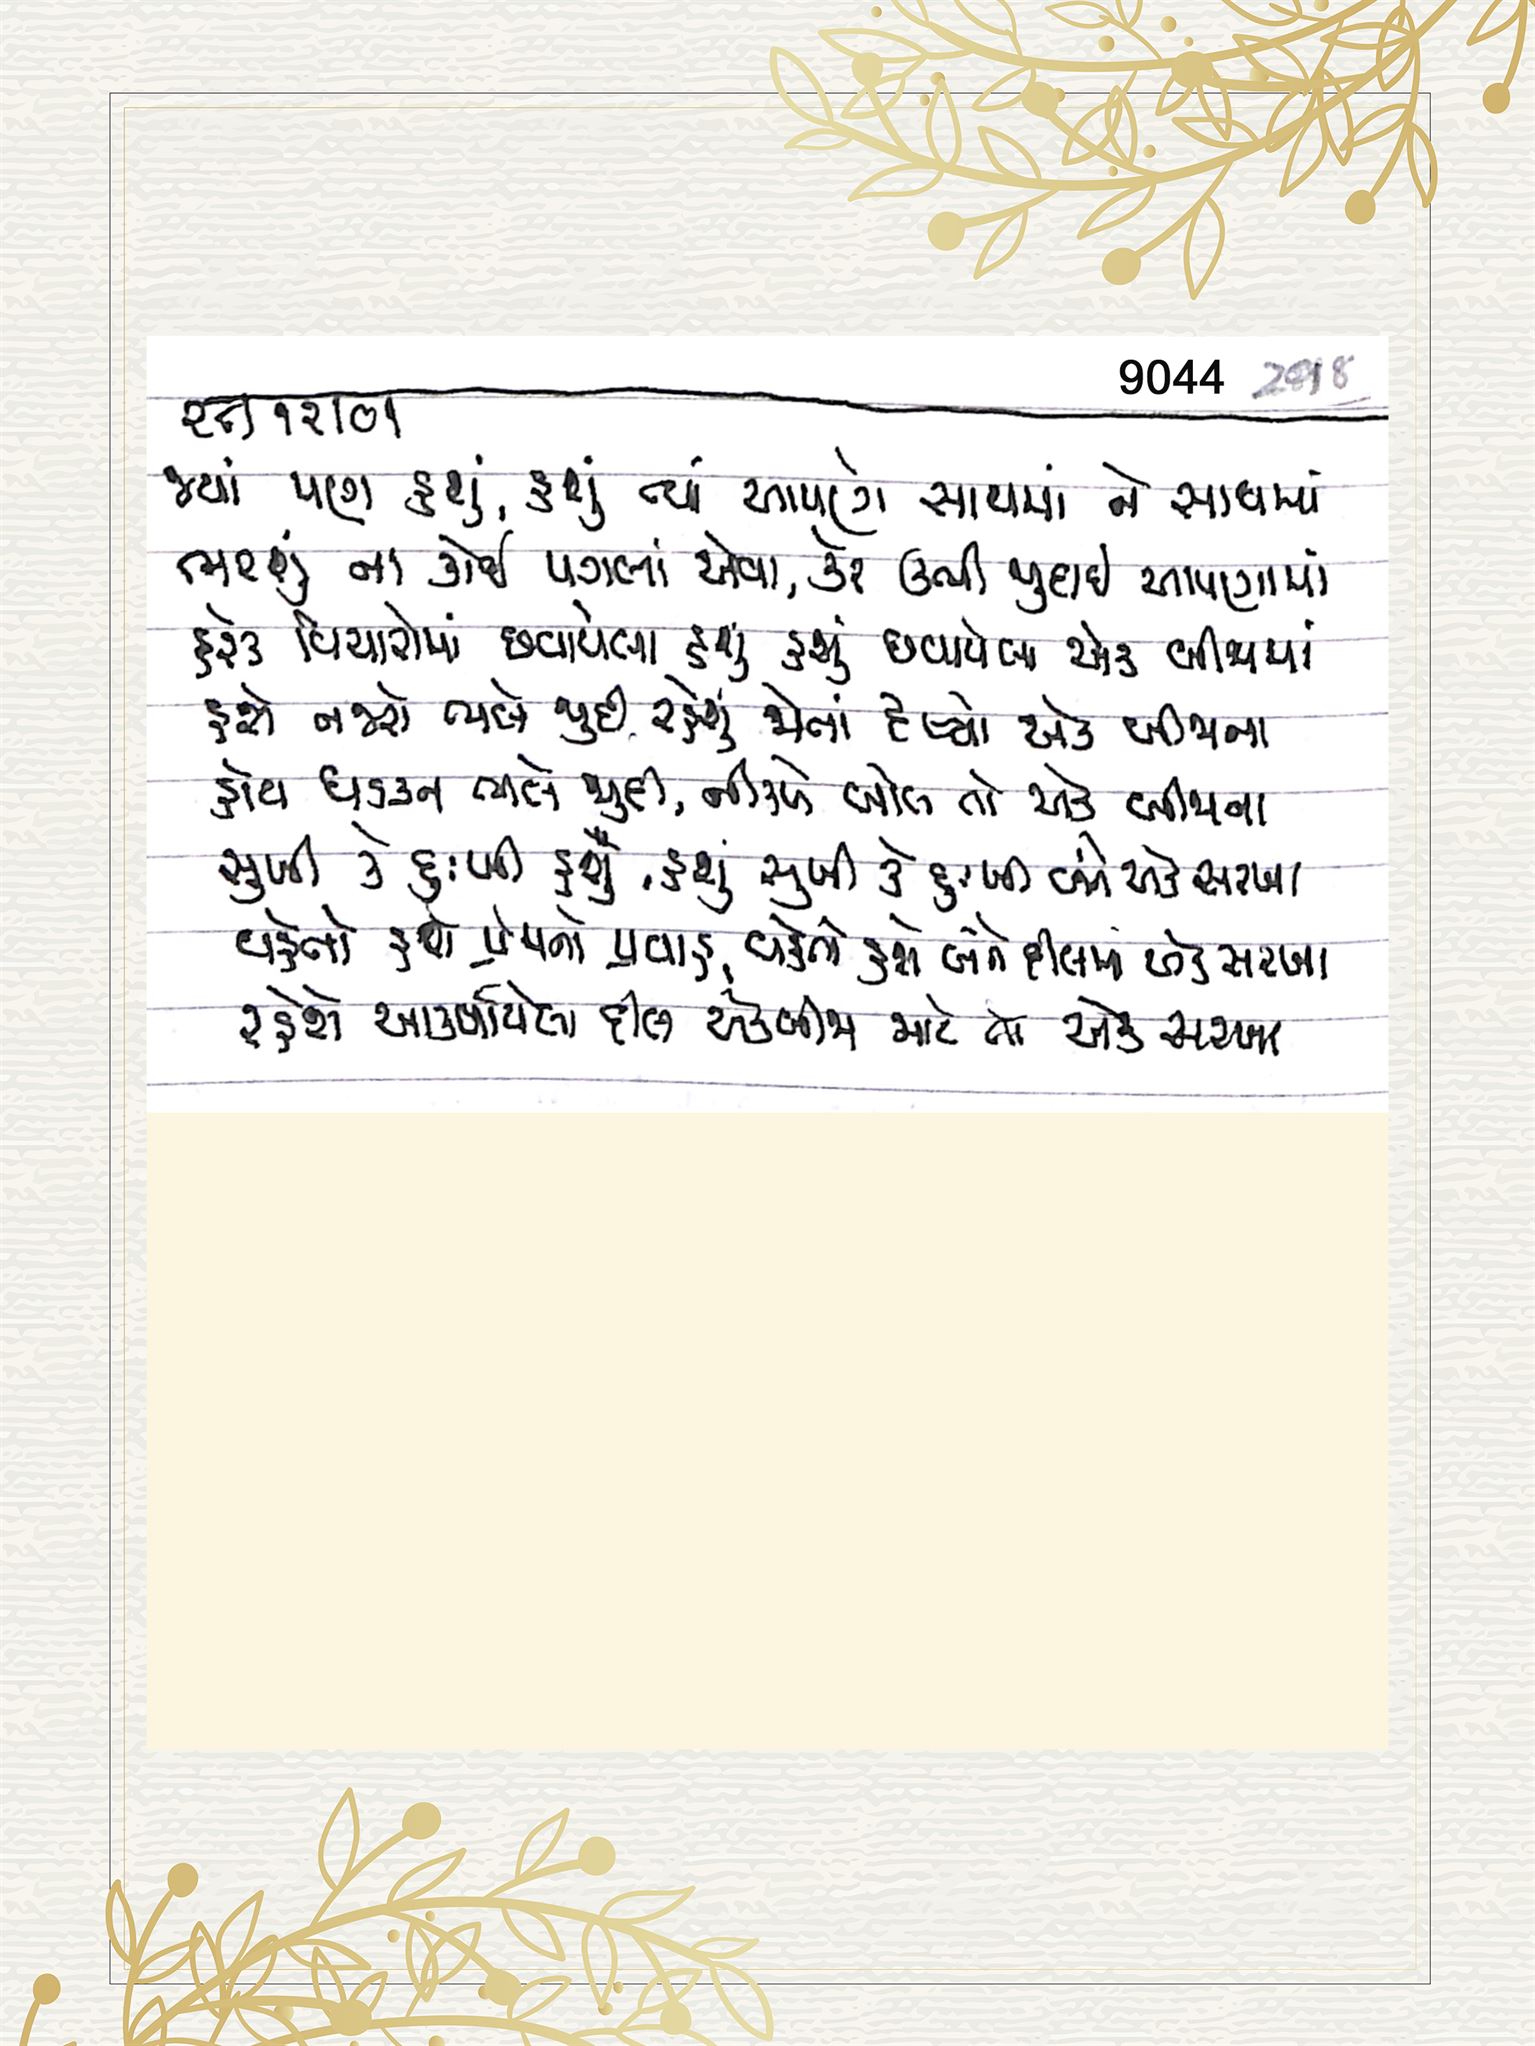 9044 2918
૨૮/૧૨/૦૧
જ્યાં પણ હશું, હશું ત્યાં આપણે સાથમાં ને સાથમાં
ભરશું ના કોઈ પગલાં એવા, કરે ઉભી જુદાઇ આપણામાં
હરેક વિચારોમાં છવાયેલા હશું હશું છવાયેલા એક બીજામાં
હશે નજરો ભલે જુદી, રહેશું જોતાં દૃશ્યો એક બીજાના
હોય ધડકન ભલે જુદી, નીકળે બોલ તો એક બીજાના
સુખી કે દુઃખી હશું, હશું સુખી કે દુઃખી બંને એક સરખા
વહેતો હશે પ્રેમનો પ્રવાહ, વહેતો હશે બંને દીલમાં એક સરખા
રહેશે આકર્ષાયેલા દીલ એકબીજા માટે તો એક સરખા